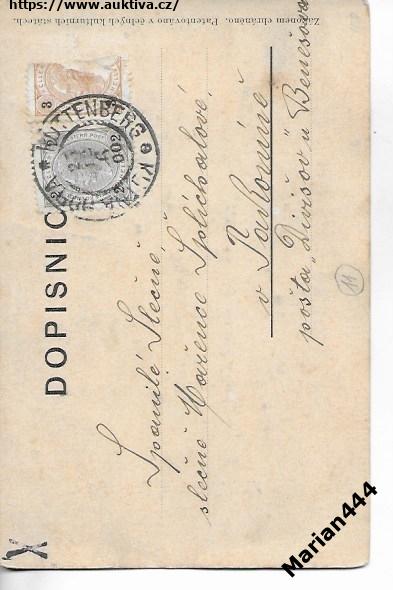 https://www.auktiva.cz/
Zákonem chráněno. Patentováno v čelných kulturních státech.
DOPISNIC
3
KUTTENBERG
KUTNÁ HORA
Spanilé Slečně,
slečně Mařence Šplíchalové,
v Pavlovíně
pošta „Divišov" u Benešova
11
X
Marian444